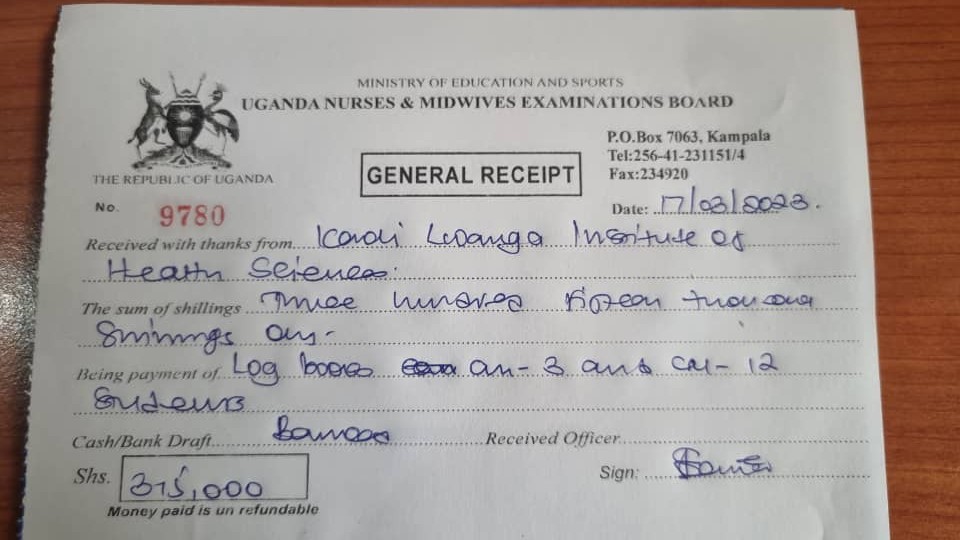 MINISTRY OF EDUCATION AND SPORTS
UGANDA NURSES & MIDWIVES EXAMINATIONS BOARD
P.O.Box 7063, Kampala
Tel:256-41-231151/4
Fax:234920
THE REPUBLIC OF UGANDA
GENERAL RECEIPT
No. 9780
Date: 17/03/2023.
Received with thanks from Karoli Lwanga Institute of
Health Sciences.
The sum of shillings Three hundred fifteen thousand
Shillings only-
Being payment of Log books - 3 and CM - 12
Students
Cash/Bank Draft Banked Received Officer
Shs. 315,000
Sign:
Money paid is un refundable